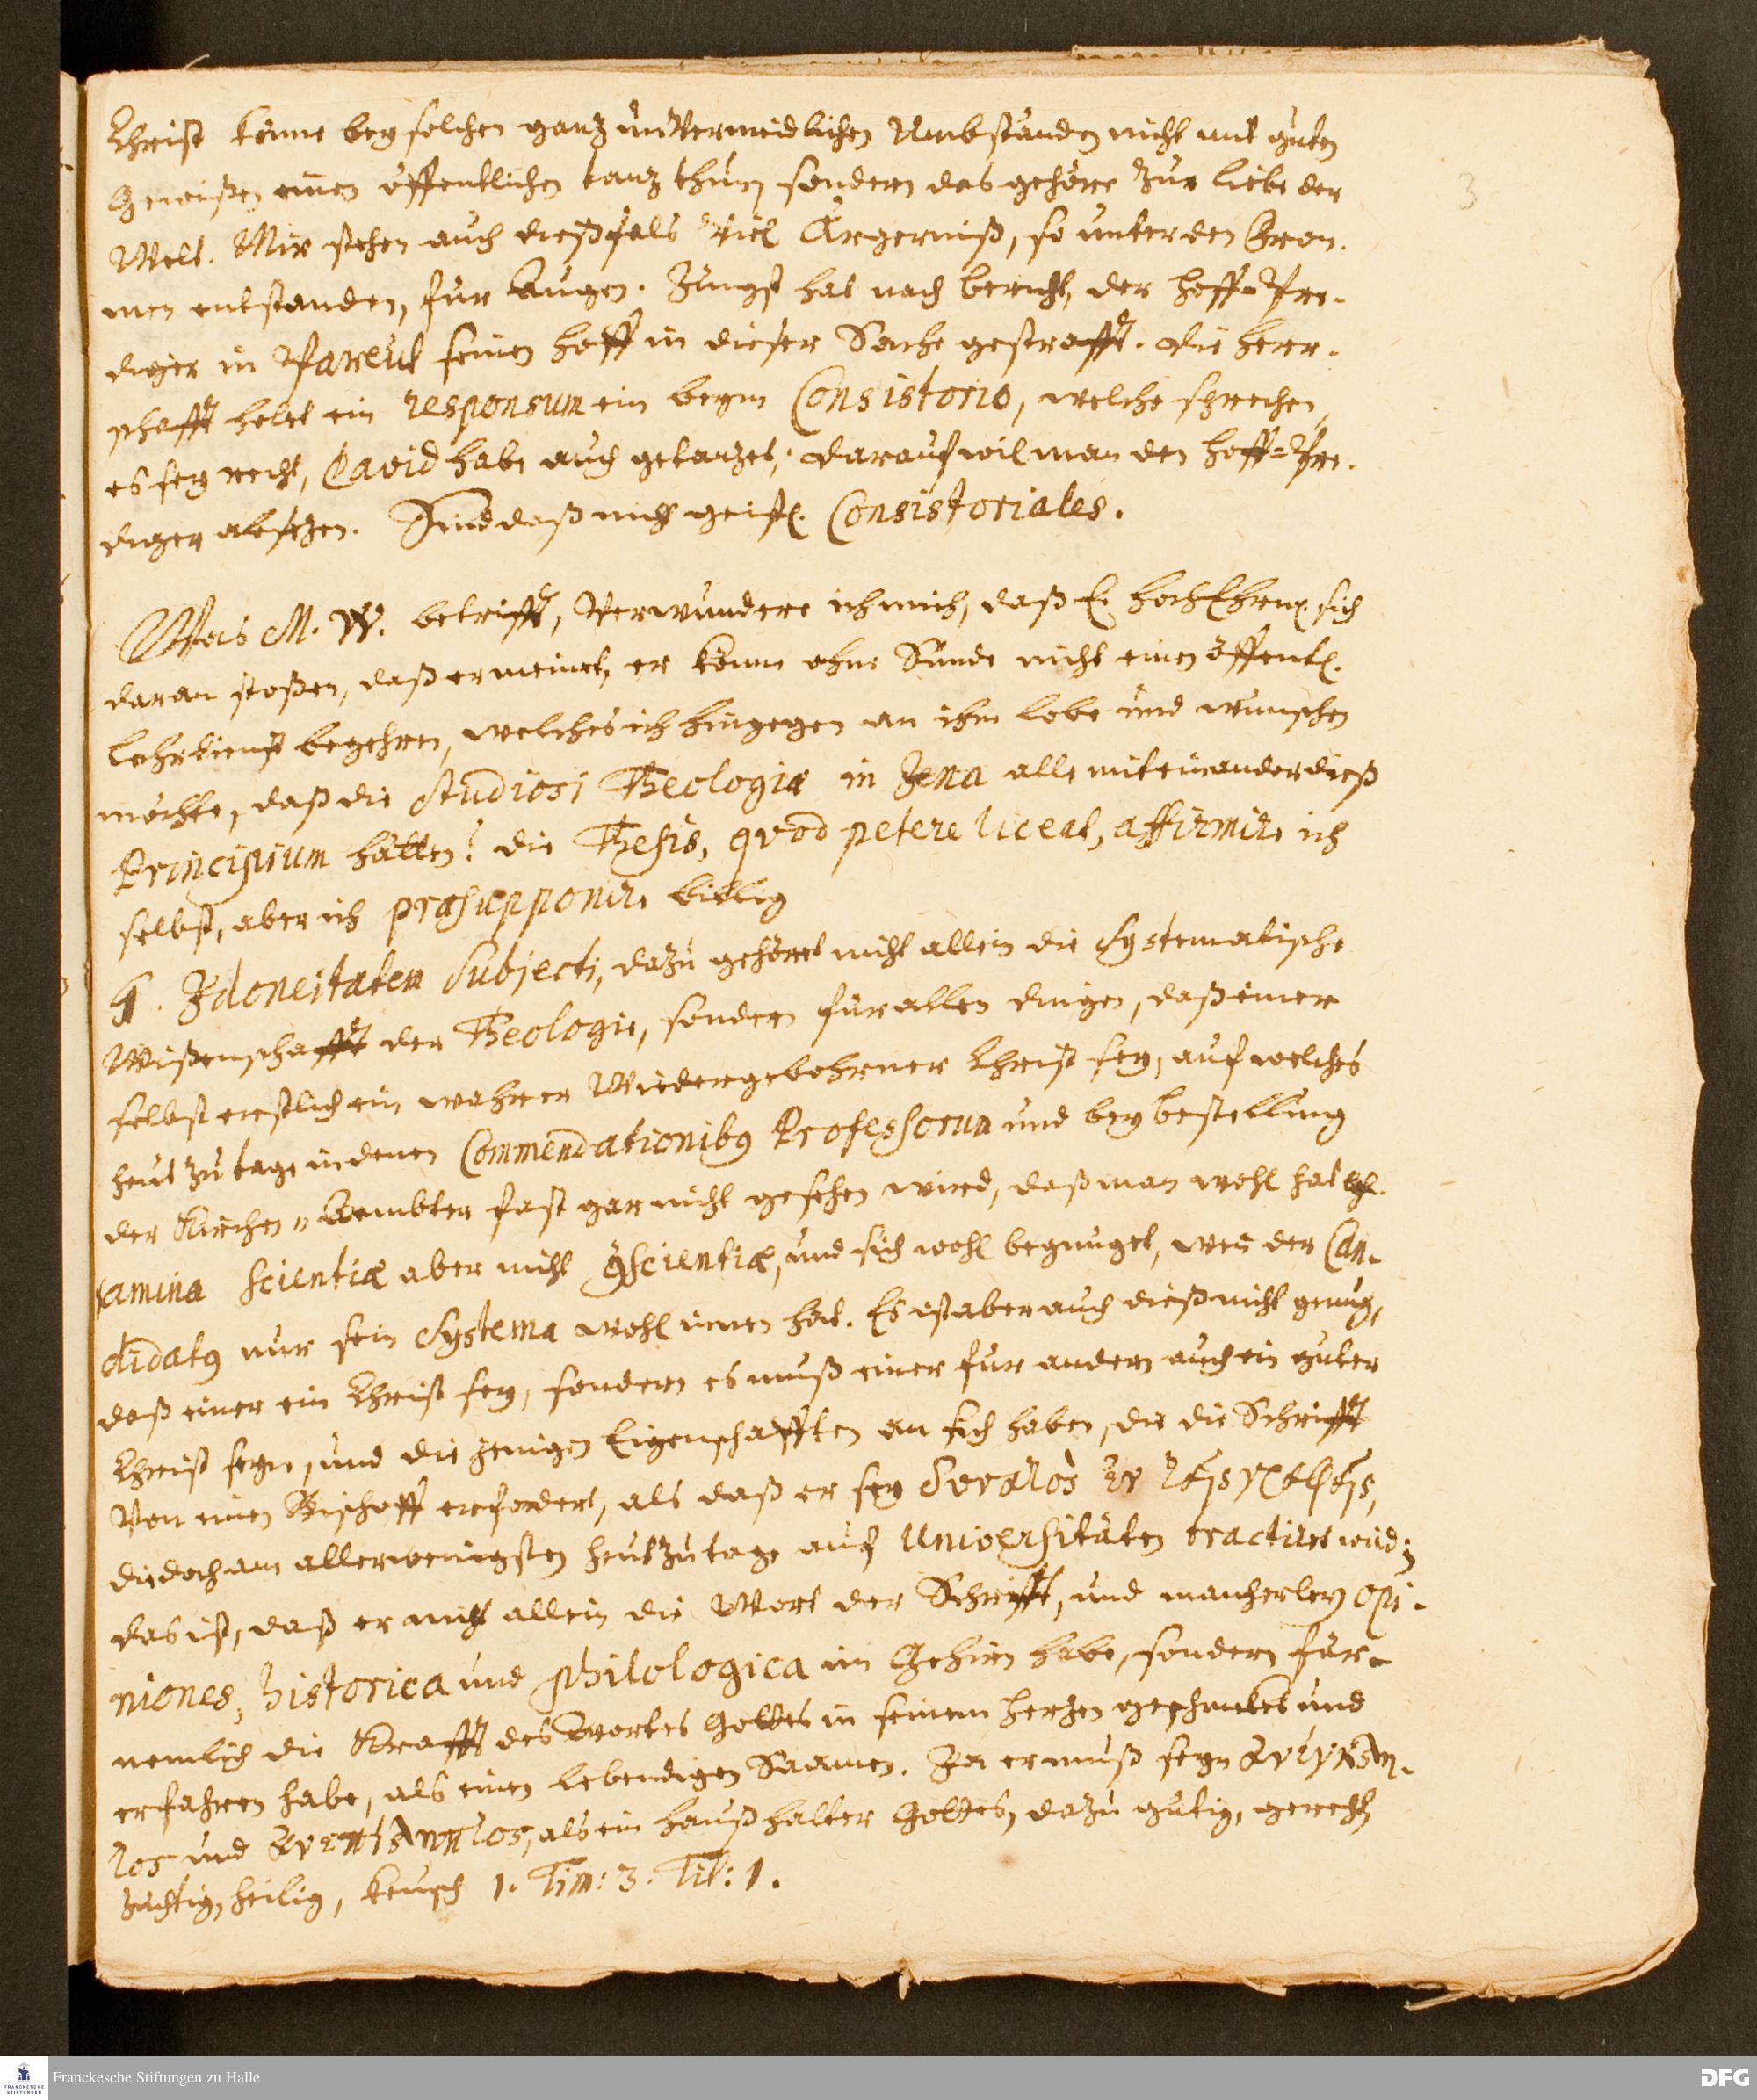 Christ könne bey solchen ganz unvermeidlichen Umbständen nicht mit guten
Gewißen einen öffentlichen tanz thun, sondern das gehöre zur liebe der
Welt. Mir stehen auch dießfals viel Ärgerniß, so unter den From-
men entstanden, fur Augen. Jüngst hat nach bericht, der Hoff-Pre-
diger in Pareut seinen Hoff in dieser Sache gestrafft. Die Herr-
schafft holet ein responsum ein beym Consistorio, welche sprechen,
es sey recht, David habe auch getanzet; darauf wil man den Hoff-Pre-
diger absetzen. Sind daß nicht geistl. Consistoriales.
Was M. W. betrifft, verwundere ich mich, daß E. HochEhrw. sich
daran stoßen, daß er meinet, er könne ohne Sünde nicht einen öffentl.
Lehrdienst begehren, welches ich hingegen an ihm lobe und wunschen
möchte, daß die Studiosi Theologiæ in Jena alle mit einander dieß
Principium hätten! die Thesis, qvod petere liceat, affirmire ich
selbst, aber ich præsupponire billig
1. Idoneitatem Subjecti, dazu gehöret nicht allein die Systematische
Wißenschafft der Theologie, sondern für allen dingen, daß einer
selbst erstlich ein wahrer Wiedergebohrner Christ sey, auf welches
heut zu tage in denen Commendationibꝰ Professorum und bey bestellung
der Kirchen-Aembter fast gar nicht gesehen wird, daß man wohl hat Ex-
amina Scientiæ aber nicht Ꝯscientiæ, und sich wohl begnuget, wen̄ der Can-
didatꝰ nur sein Systema wohl innen hat. Es ist aber auch dieß nicht genug,
daß einer ein Christ sey, sondern es muß einer fur andern auch ein guter
Christ seyn, und die jenigen Eigenschafften an sich haben, die die Schrifft
von einen Bischoff erfordert, als daß er sey δυνατὸς ἐν ταῖς γραφαῖς,
die doch am allerwenigsten heut zu tage auf Universitäten tractiret wird;
das ist, daß er nicht allein die Wort der Schrifft, und mancherley opi-
niones, historica und philologica im Gehirn habe, sondern für-
nemlich die Krafft des Wortes Gottes in seinem Herzen geschmeket und
erfahren habe, als einen lebendigen Saamen. Ja er muß seyn ἀνέγκλη-
τος und ἀνεπίληπτος, als ein Haußhalter Gottes, dazu gutig, gerecht,
züchtig, heilig, keusch 1. Tim: 3. Tit: 1.
3
Franckesche Stiftungen zu Halle
DFG